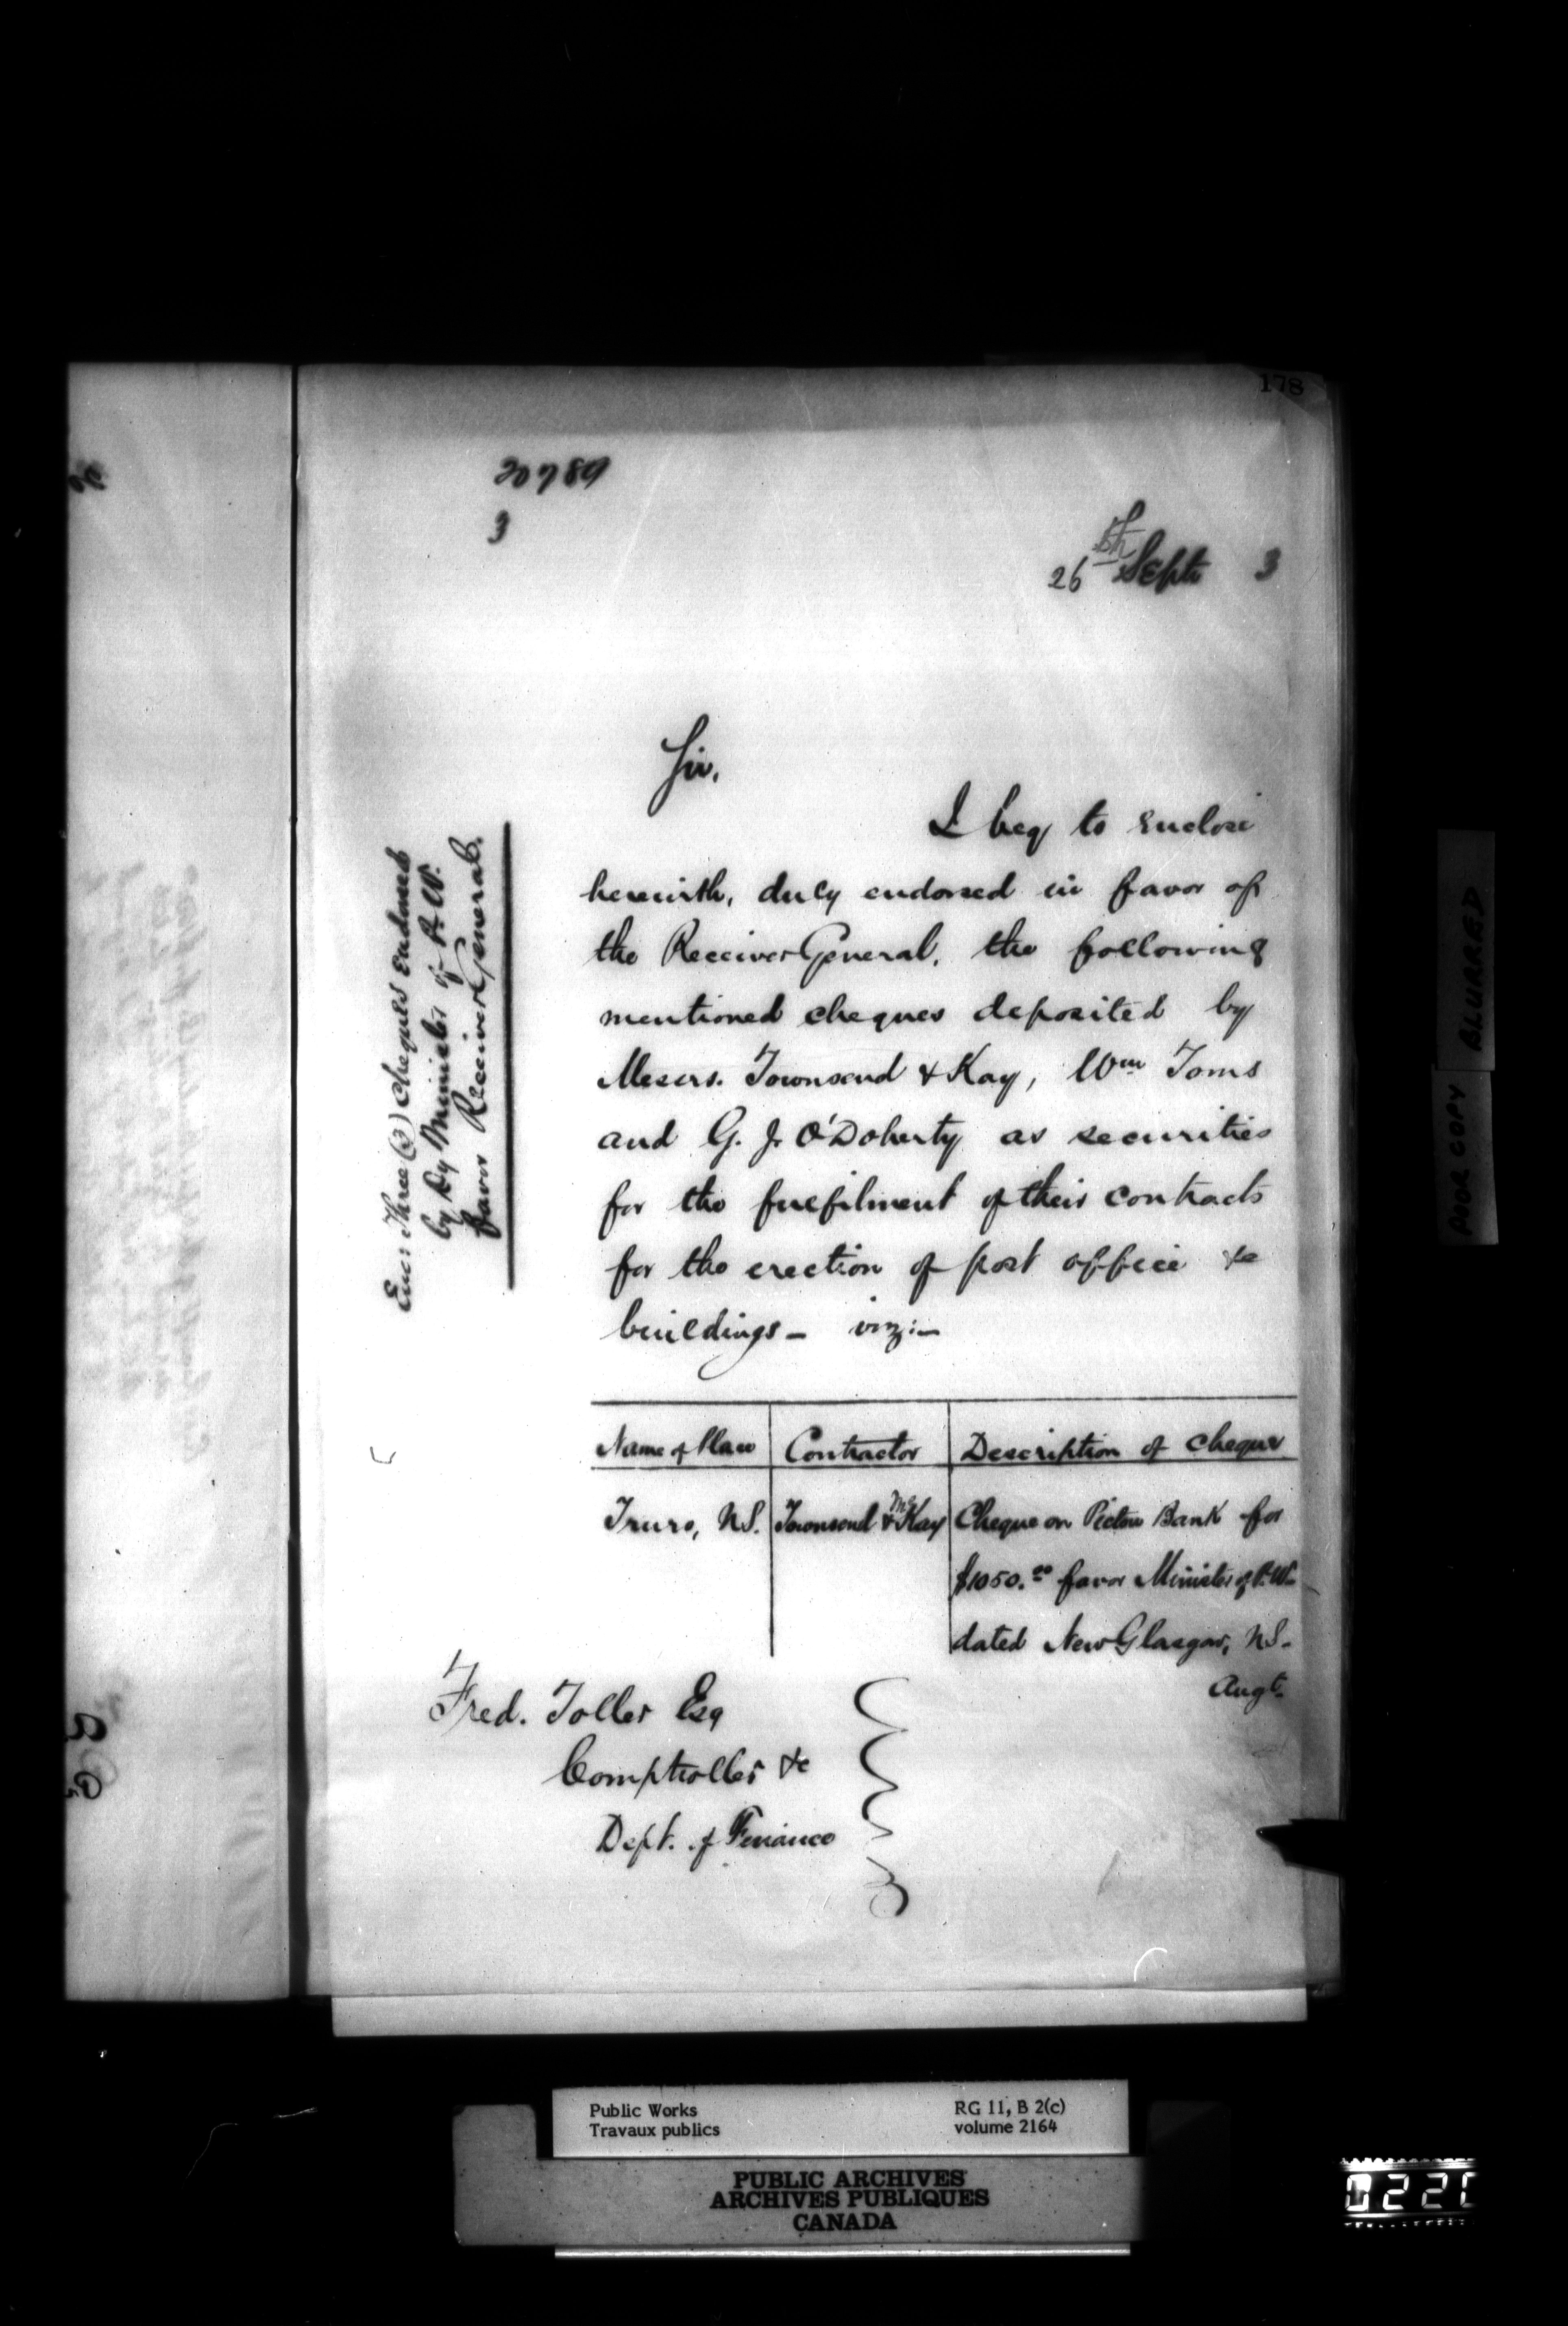 178
20789
3
26th Septr 3
Sir,
I beg to enclose
herewith, duly endorsed in favor of
the Receiver General, the following
mentioned cheques deposited by
Messrs. Townsend & Kay, Wm Toms
and G. J. O'Doherty as securities
for the fulfilment of their contracts
for the erection of post office &c
buildings — viz:—
Encr Three (3) cheques endorsed
by Dy Minister of P. W.
favor Receiver General.
Name of Place | Contractor | Description of cheque
Truro, N.S. | Townsend & McKay | Cheque on Pictou Bank for
$1050.00 favor Minister of P.W.
dated New Glasgow, N.S.
Augt.
Fred. Toller Esq
Comptroller &c
Dept. of Finance
POOR COPY BLURRED
Public Works
Travaux publics
RG 11, B 2(c)
volume 2164
PUBLIC ARCHIVES
ARCHIVES PUBLIQUES
CANADA